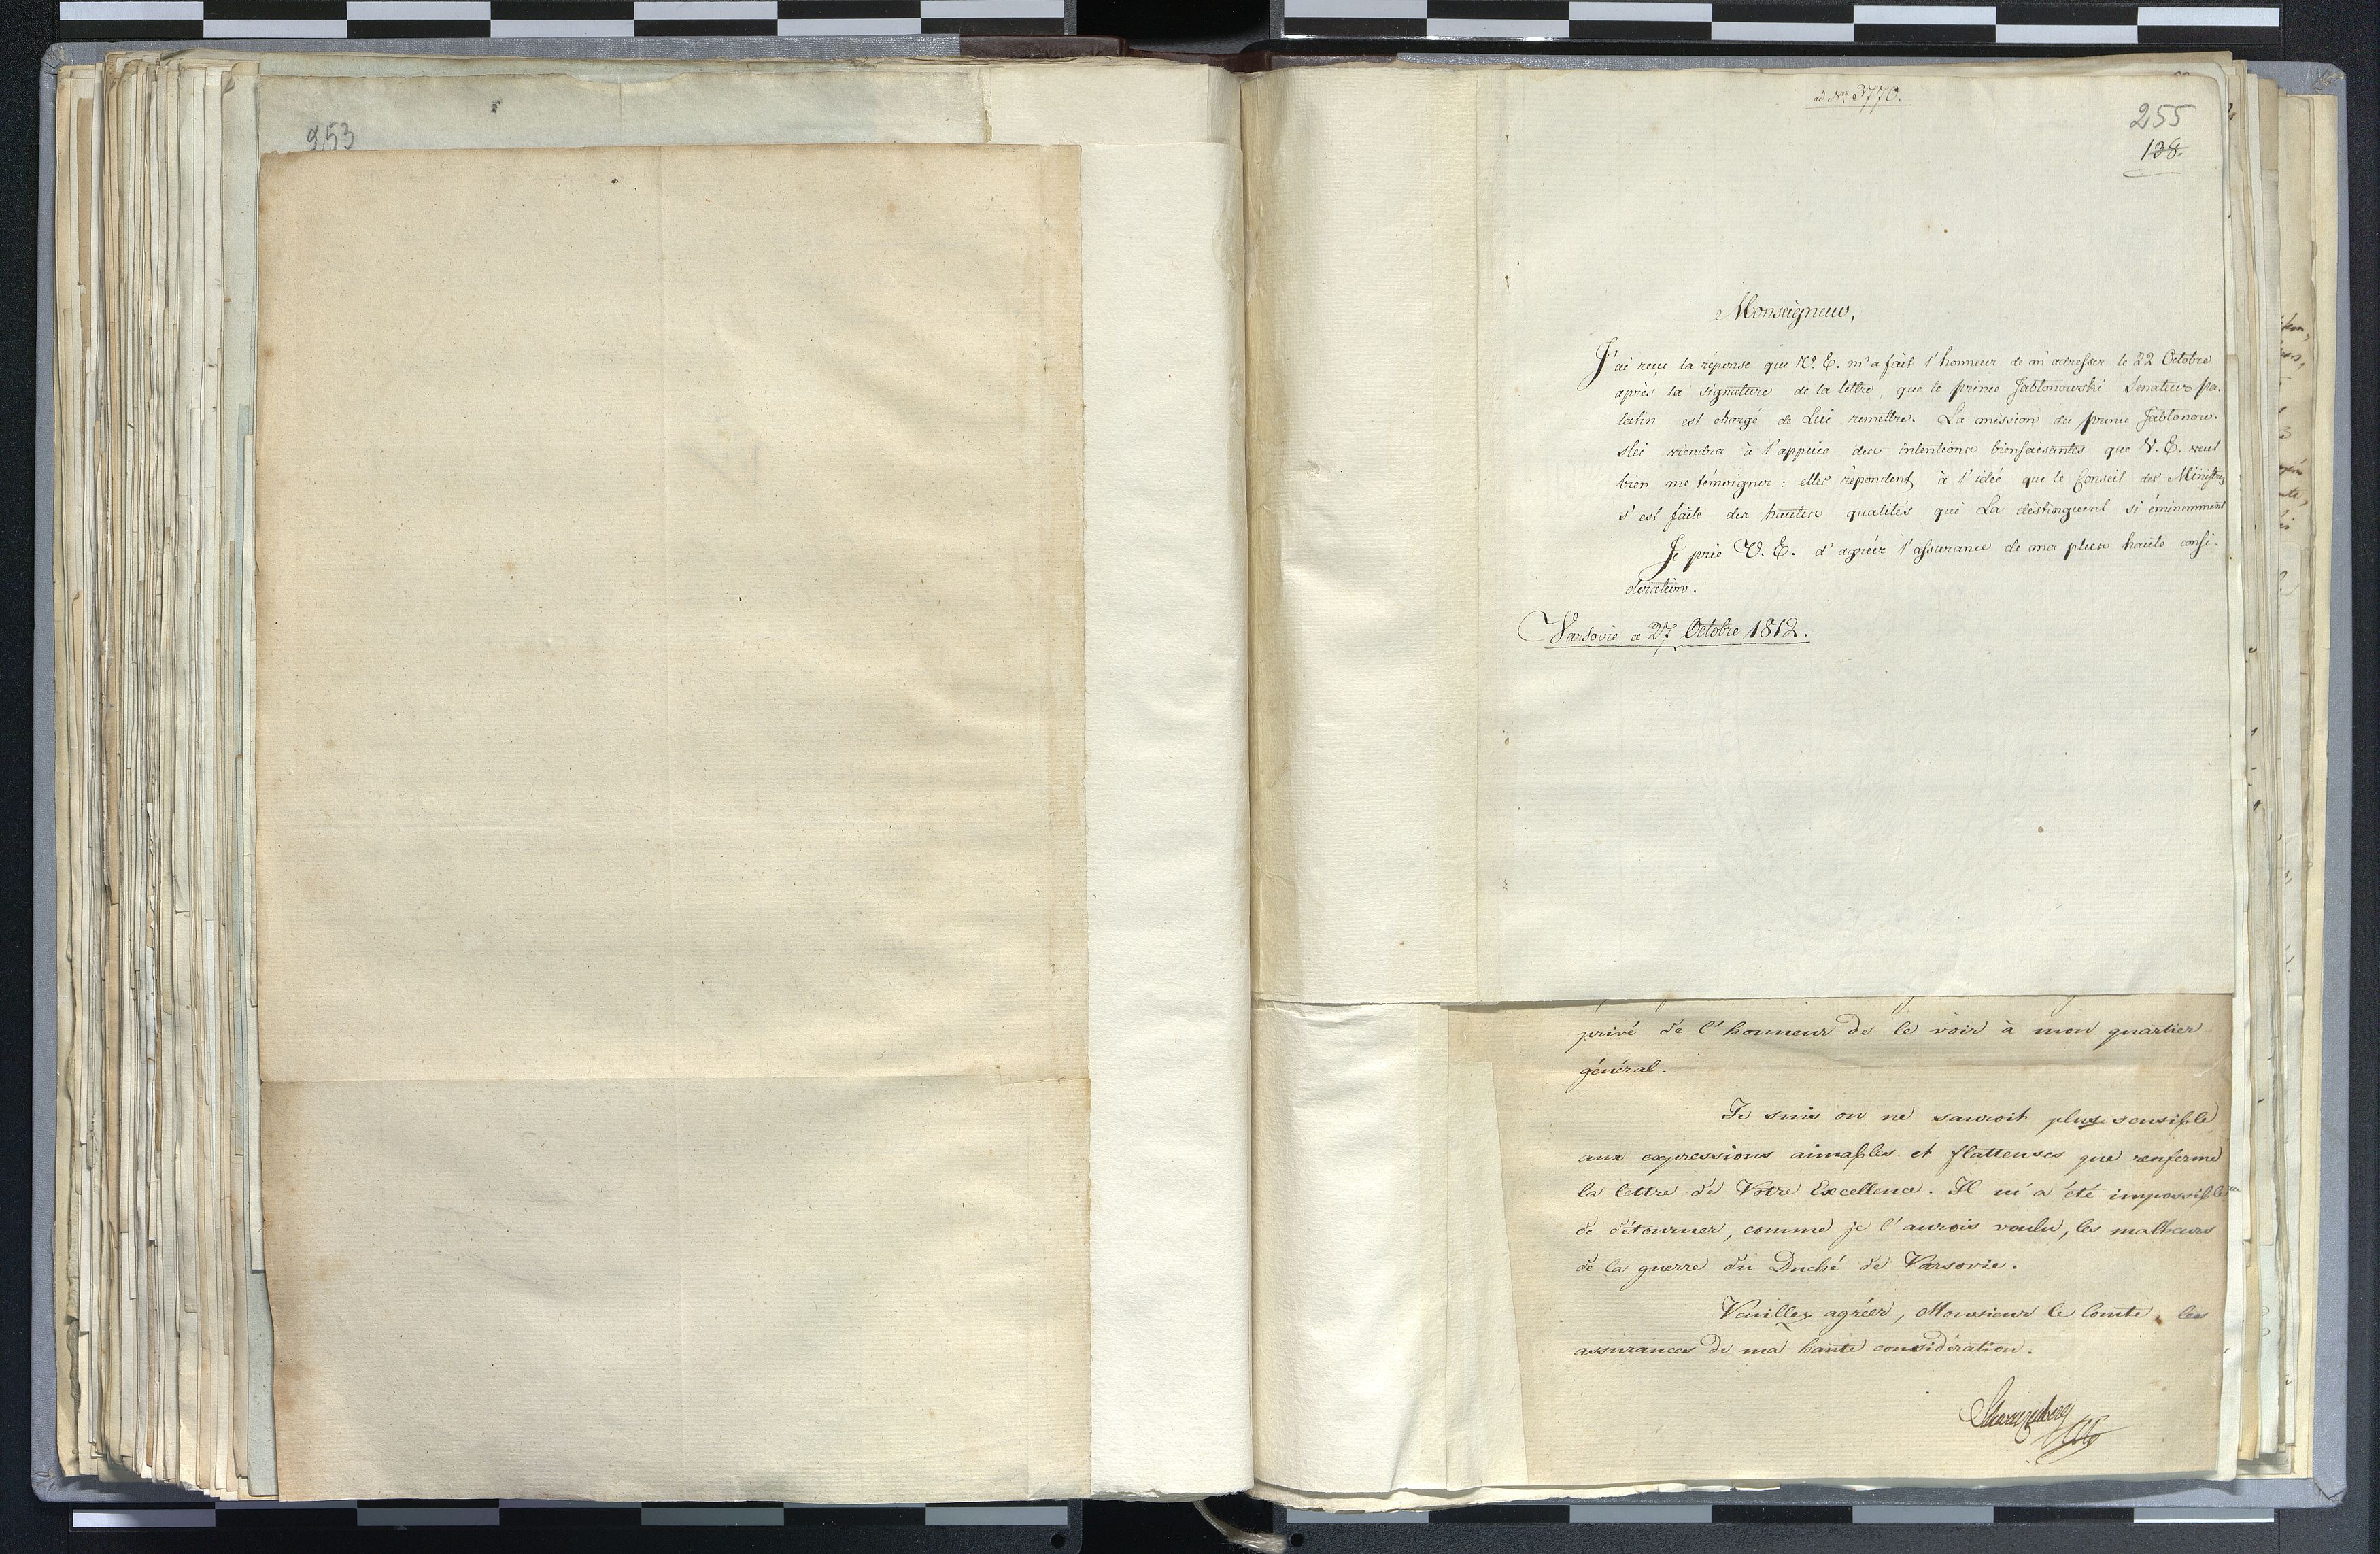 253
ad Nr. 3770.
255
138.
Monseigneur,
J'ai reçu la réponse que V. E. m'a fait l'honneur de m'adresser le 22 Octobre
après la signature de la lettre, que le prince Jabłonowski Senateur pa-
latin est chargé de Lui remettre. La mission du prince Jabłonow-
ski viendra à l'appuie des intentions bienfaisantes que V. E. veut
bien me témoigner: elles répondent à l'idée que le Conseil des Ministres
s'est faite des hautes qualités qui La distinguent si éminemment
Je prie V. E. d'agréer l'assurance de ma plus haute consi-
deration.
Varsovie ce 27 Octobre 1812.
privé de l'honneur de le voir à mon quartier
général.
Je suis on ne sauroit plus sensible
aux expressions aimables et flatteuses que renferme
la lettre de Votre Excellence. Il m'a été impossible
de détourner, comme je l'aurois voulu, les malheurs
de la guerre du Duché de Varsovie.
Veuillez agréer, Monsieur le Comte, les
assurances de ma haute considération.
Schwarzenberg